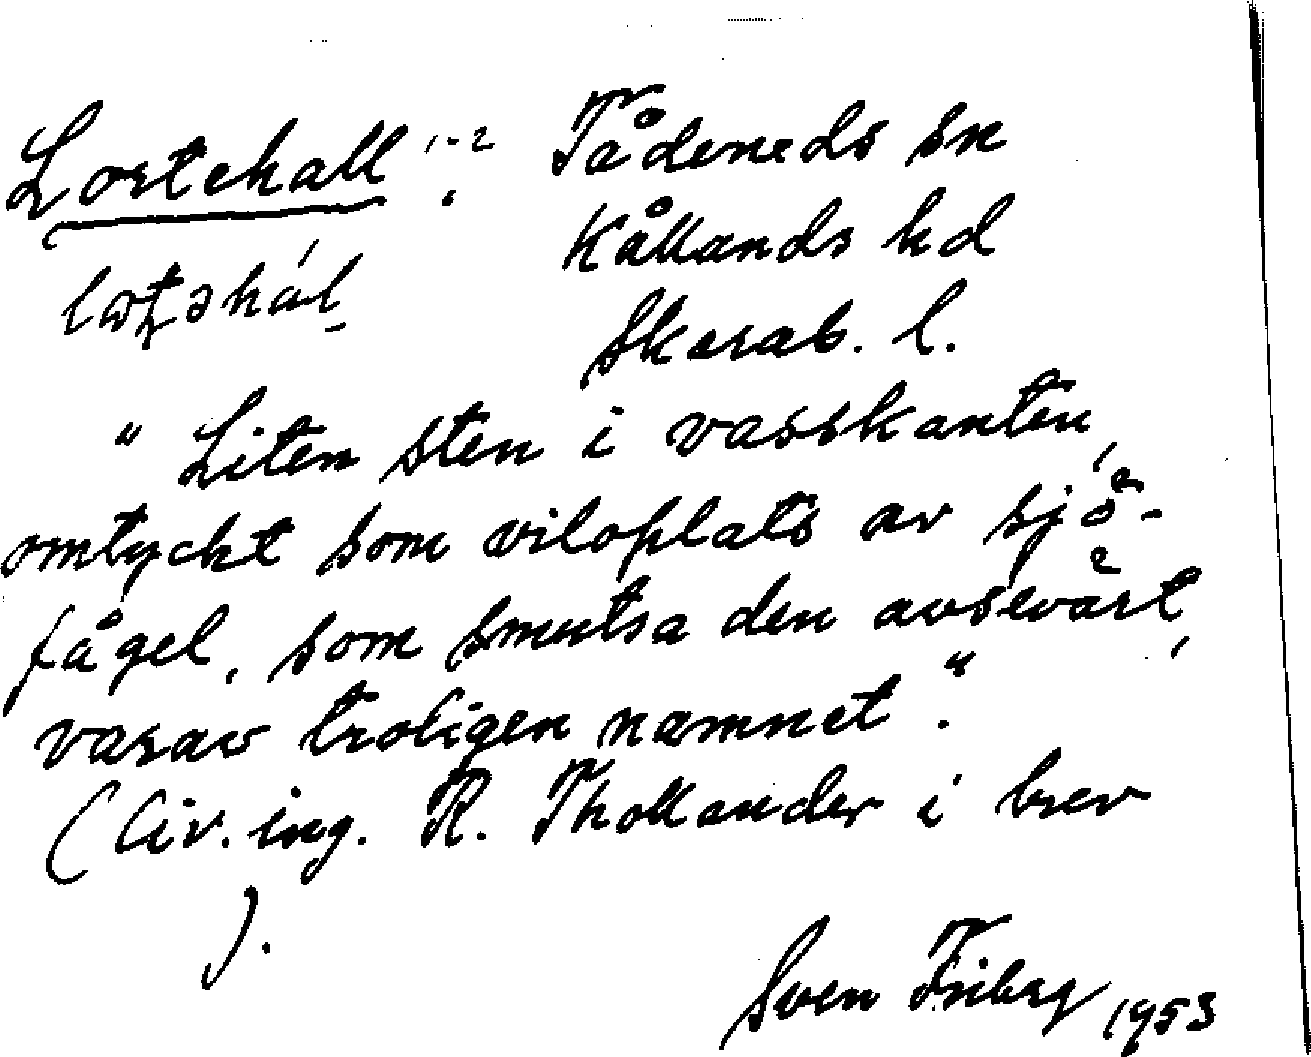 Lortehall : Tådeneds sn
Kållands hd
Skarab. l.
" Liten sten i vasskanten,
omtyckt som viloplats av sjö-
fågel, som smutsa den avsevärt,
varav troligen namnet."
(Civ. ing. R. Thollander i brev
).
Sven Friberg 1953